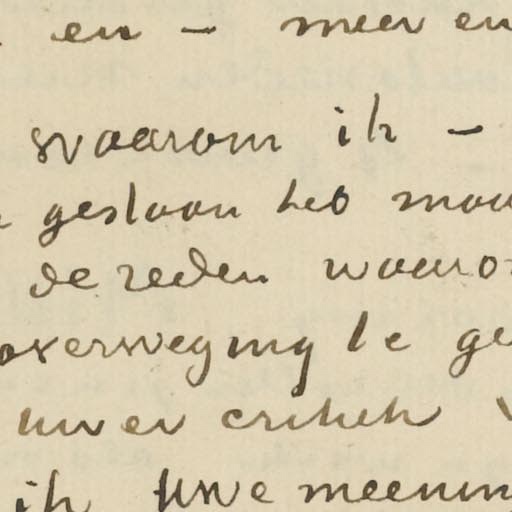 en – meer en
waarom ik –
geslaan heb maa
de reden waaro
overweging te ge
uwer critiek
ik Uwe meenin